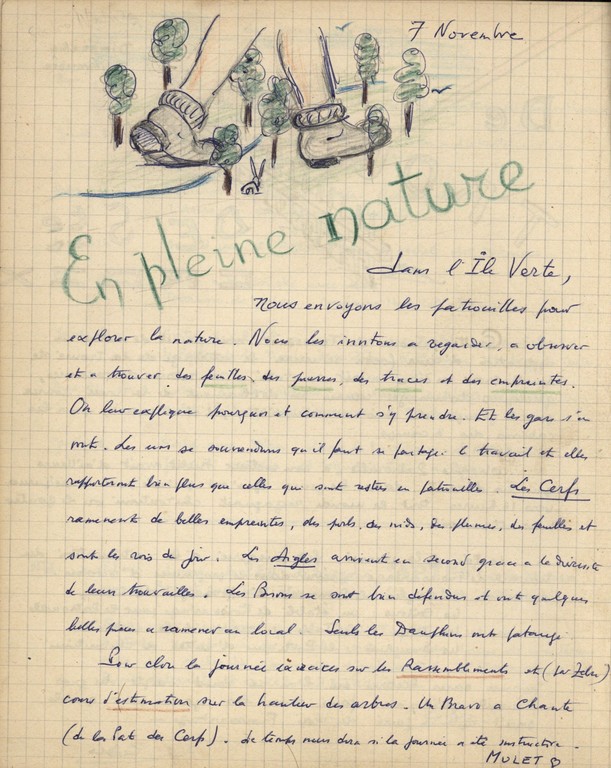 7 Novembre
En pleine nature
dans l'Île Verte,
nous envoyons les patrouilles pour
explorer la nature. Nous les invitons a regarder, a observer
et a trouver des feuilles, des pierres, des traces et des empreintes.
On leur explique pourquoi et comment s'y prendre. Et les gars s'en
vont. Les uns se souviendrons qu'il faut se partager le travail et elles
rapporteront bien plus que celles qui sont restées en patrouilles. Les Cerfs
ramenent de belles empreintes, des poils, des nids, des plumes, des feuilles et
sont les rois du jour. Les Aigles arrivent en second grace a la diversité
de leurs trouvailles. Les Bisons se sont bien défendus et ont quelques
belles pieces a ramener au local. Seuls les Dauphins ont patauge.
Pour clore la journée exercices sur les Rassemblements et (par Zebu)
cours d'estimation sur la hauteur des arbres. Un Bravo a Chante
(de la Pat des Cerfs). Le temps nous dira si la journée a été instructive.
MULET